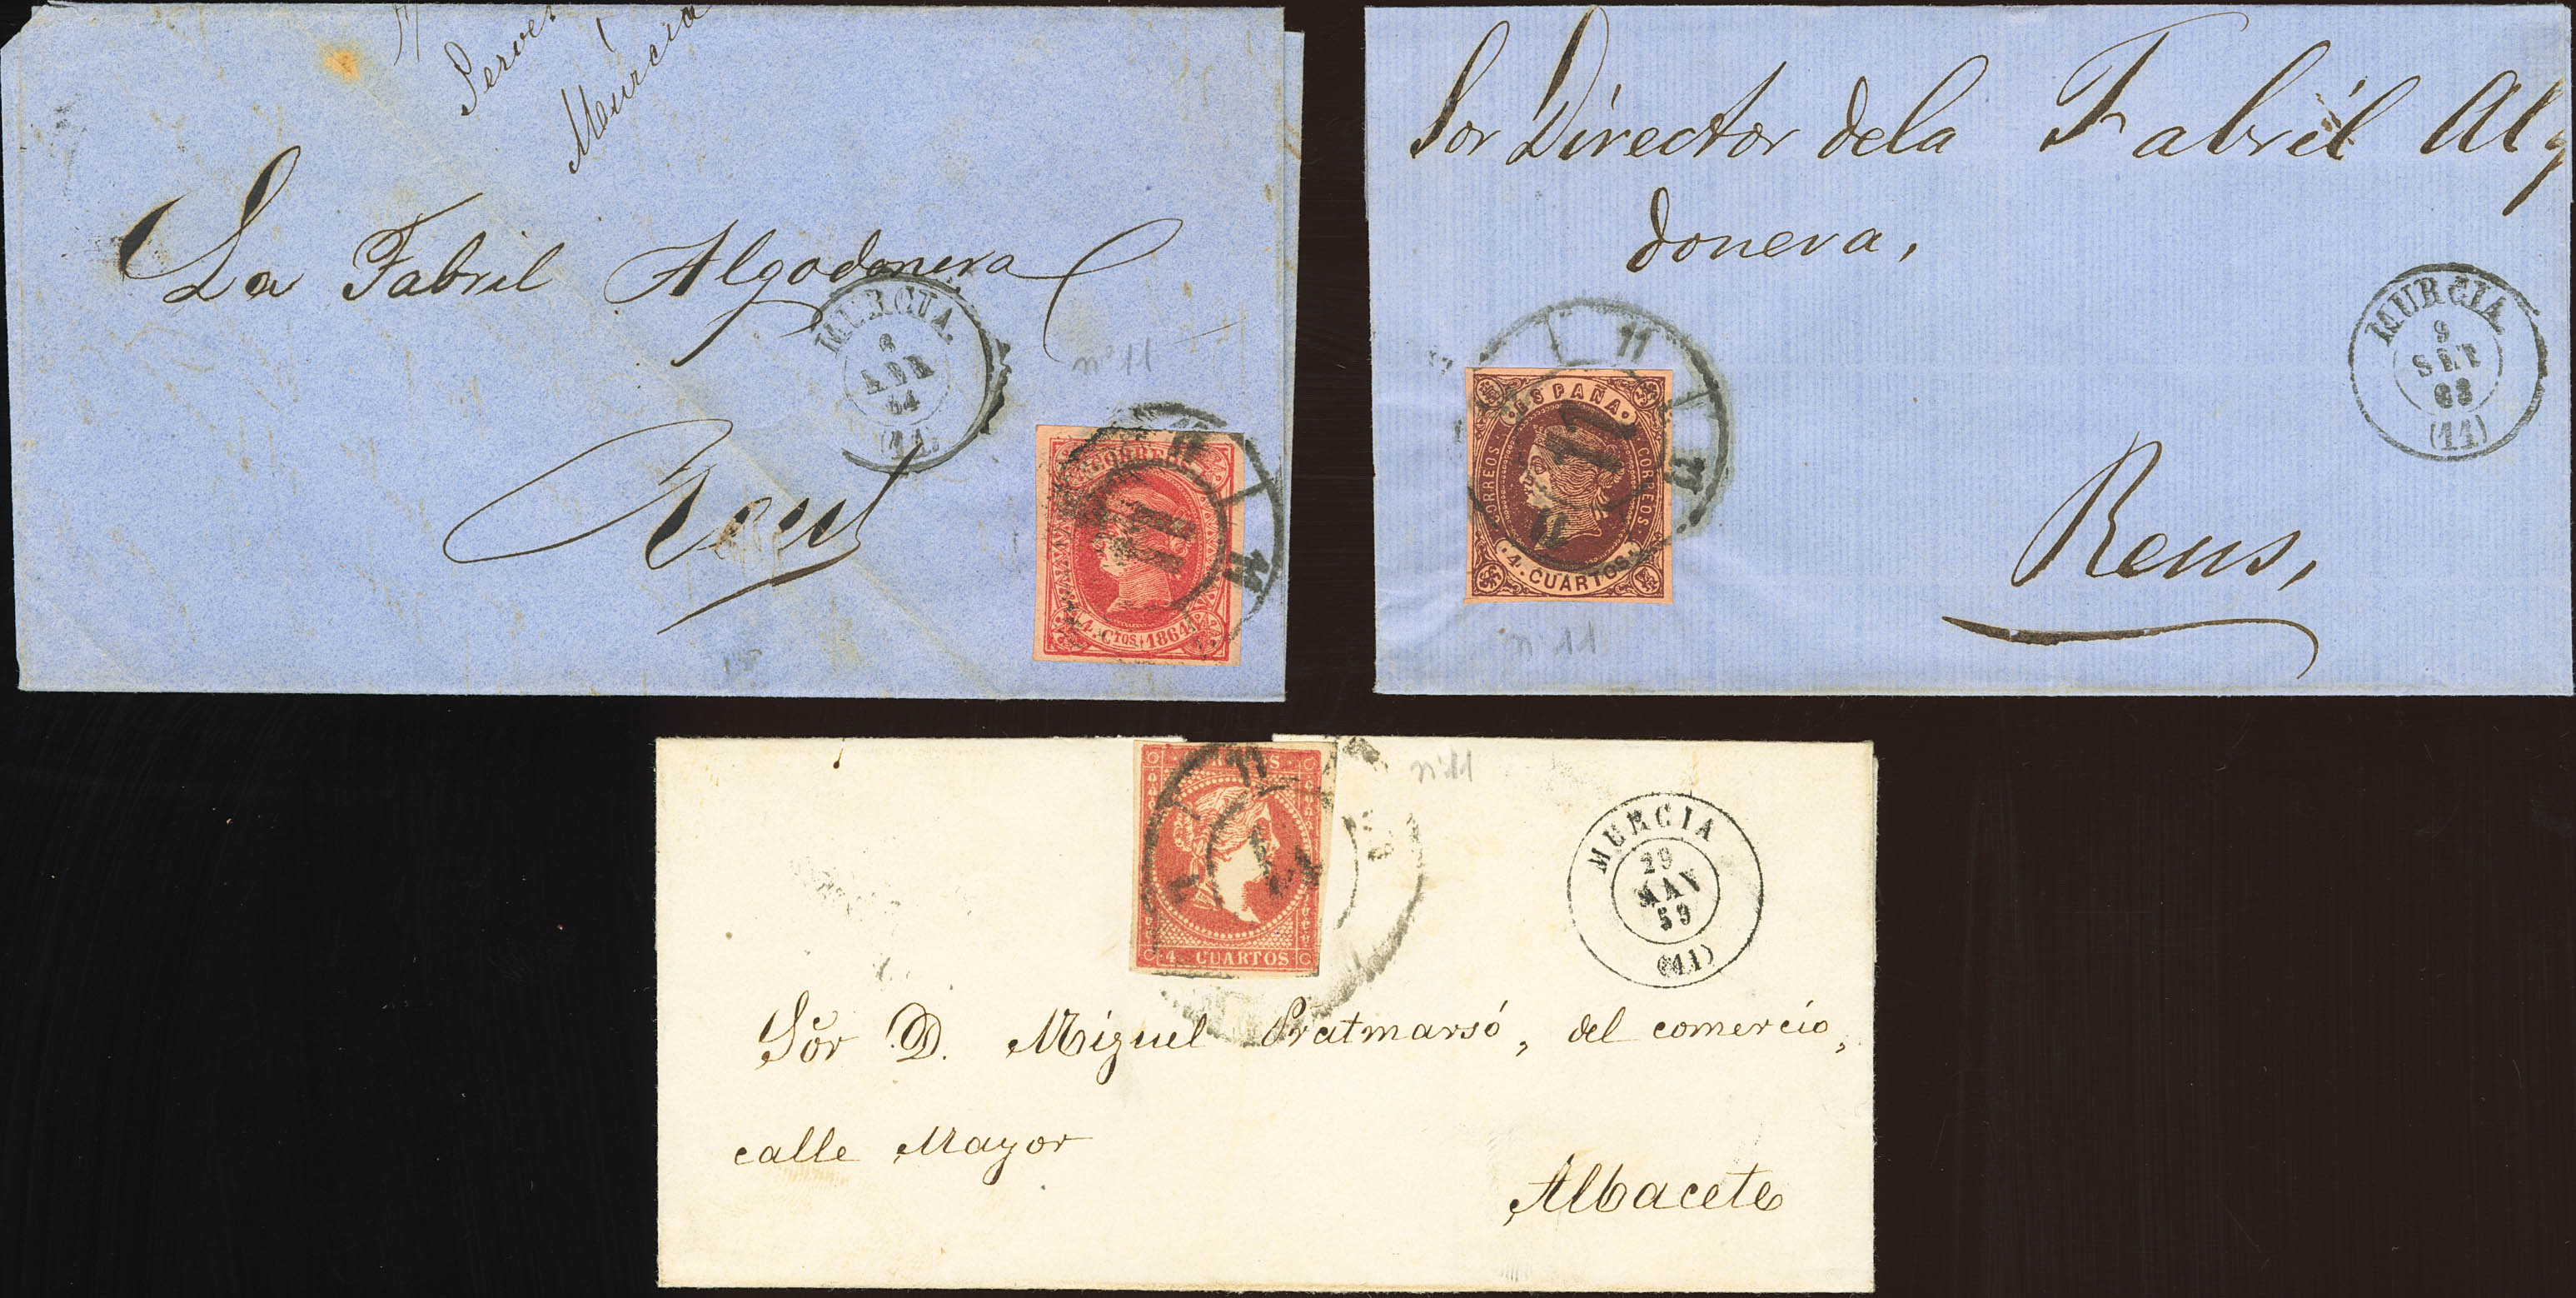 Murcia
La Fabril Algodonera
MURCIA
6
ABR
64
(11)
nº 11
Reus
CORREOS
11
4 CTOS. 1864
Sor Director dela Fabril Alg
donera,
MURCIA
9
SET
63
(11)
11
11
11
ESPAÑA
CORREOS
CORREOS
11
4 CUARTOS
Reus,
nº 11
11
nº 11
4 CUARTOS
MURCIA
29
MAY
59
(11)
Sor D. Miguel Pratmarsó, del comercio,
calle Mayor
Albacete